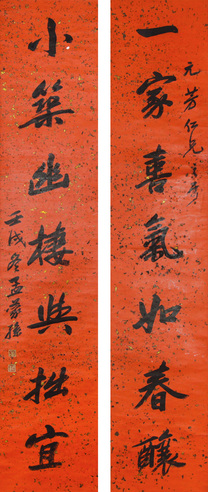 一家喜氣如春釀
元芳仁兄之屬
小築幽棲與拙宜
壬戌冬孟蓴孫